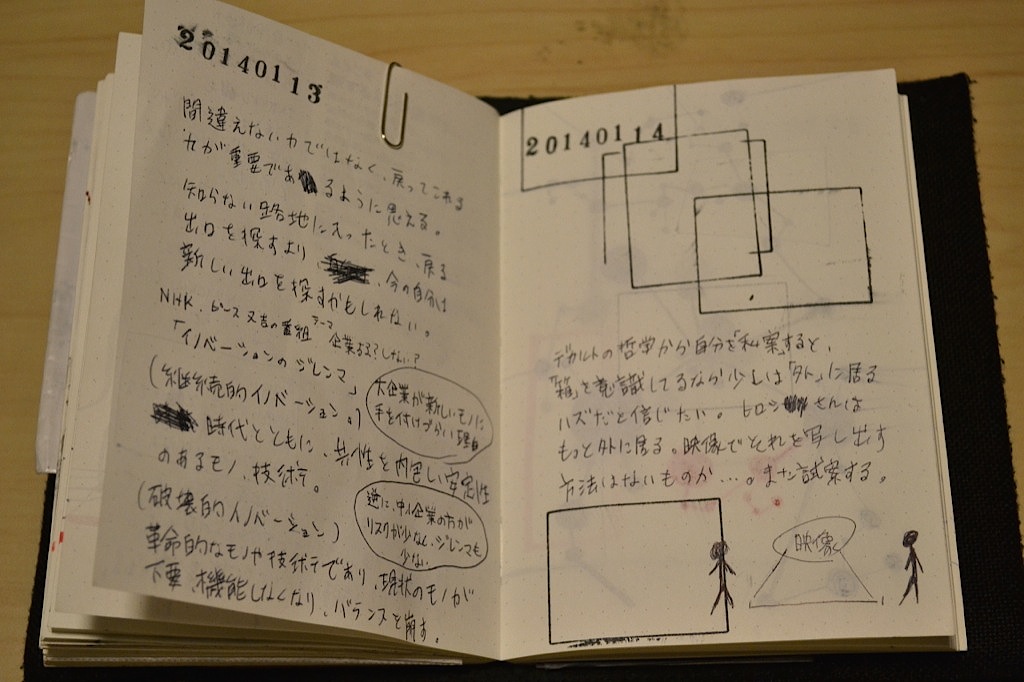 20140113
間違えない力ではなく、戻ってこれる
力が重要であるように思える。
知らない路地に入ったとき、戻る
出口を探すより、今の自分は
新しい出口を探すかもしれない。
NHK、ピース又吉の番組 テーマ 企業する?しない?
「イノベーションのジレンマ」
(継続的イノベーション。)
大企業が新しいモノに
手を付けづらい理由
時代とともに、共 性を内包し安定性
のあるモノ、技術で。
(破壊的イノベーション)
逆に、中小企業の方が
リスクが少なく、ジレンマも
少ない
革命的なモノや技術 であり、現状のモノが
下 、機能しなくなり、バランスを崩す。
20140114
デカルトの哲学から自分を私案すると、
「箱」を意識してるなら少しは「外」に居る
ハズだと信じたい。ヒロシ さんは
もっと外に居る。映像でそれを写し出す
方法はないものか…。また試案する。
映像